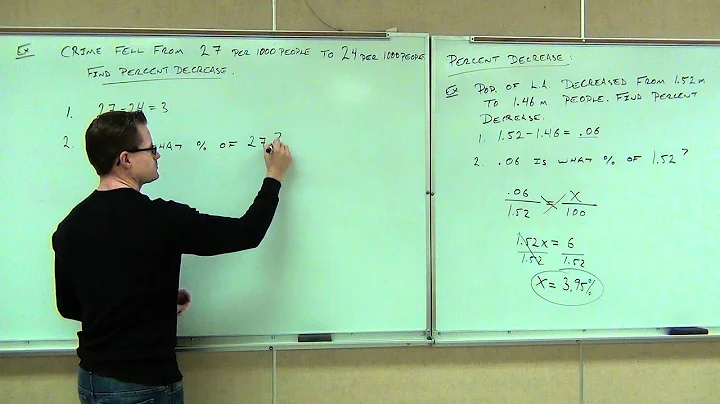 Ex CRIME FELL FROM 27 PER 1000 PEOPLE TO 24 PER 1000 PEOPLE
FIND PERCENT DECREASE.
1. 27-24 = 3
2. WHAT % OF 27?
PERCENT DECREASE:
Ex POP. OF L.A. DECREASED FROM 1.52 M
TO 1.46 M PEOPLE. FIND PERCENT
DECREASE.
1. 1.52-1.46 = .06
2. .06 IS WHAT % OF 1.52?
.06 = X
1.52 100
1.52X = 6
1.52 1.52
X = 3.95%